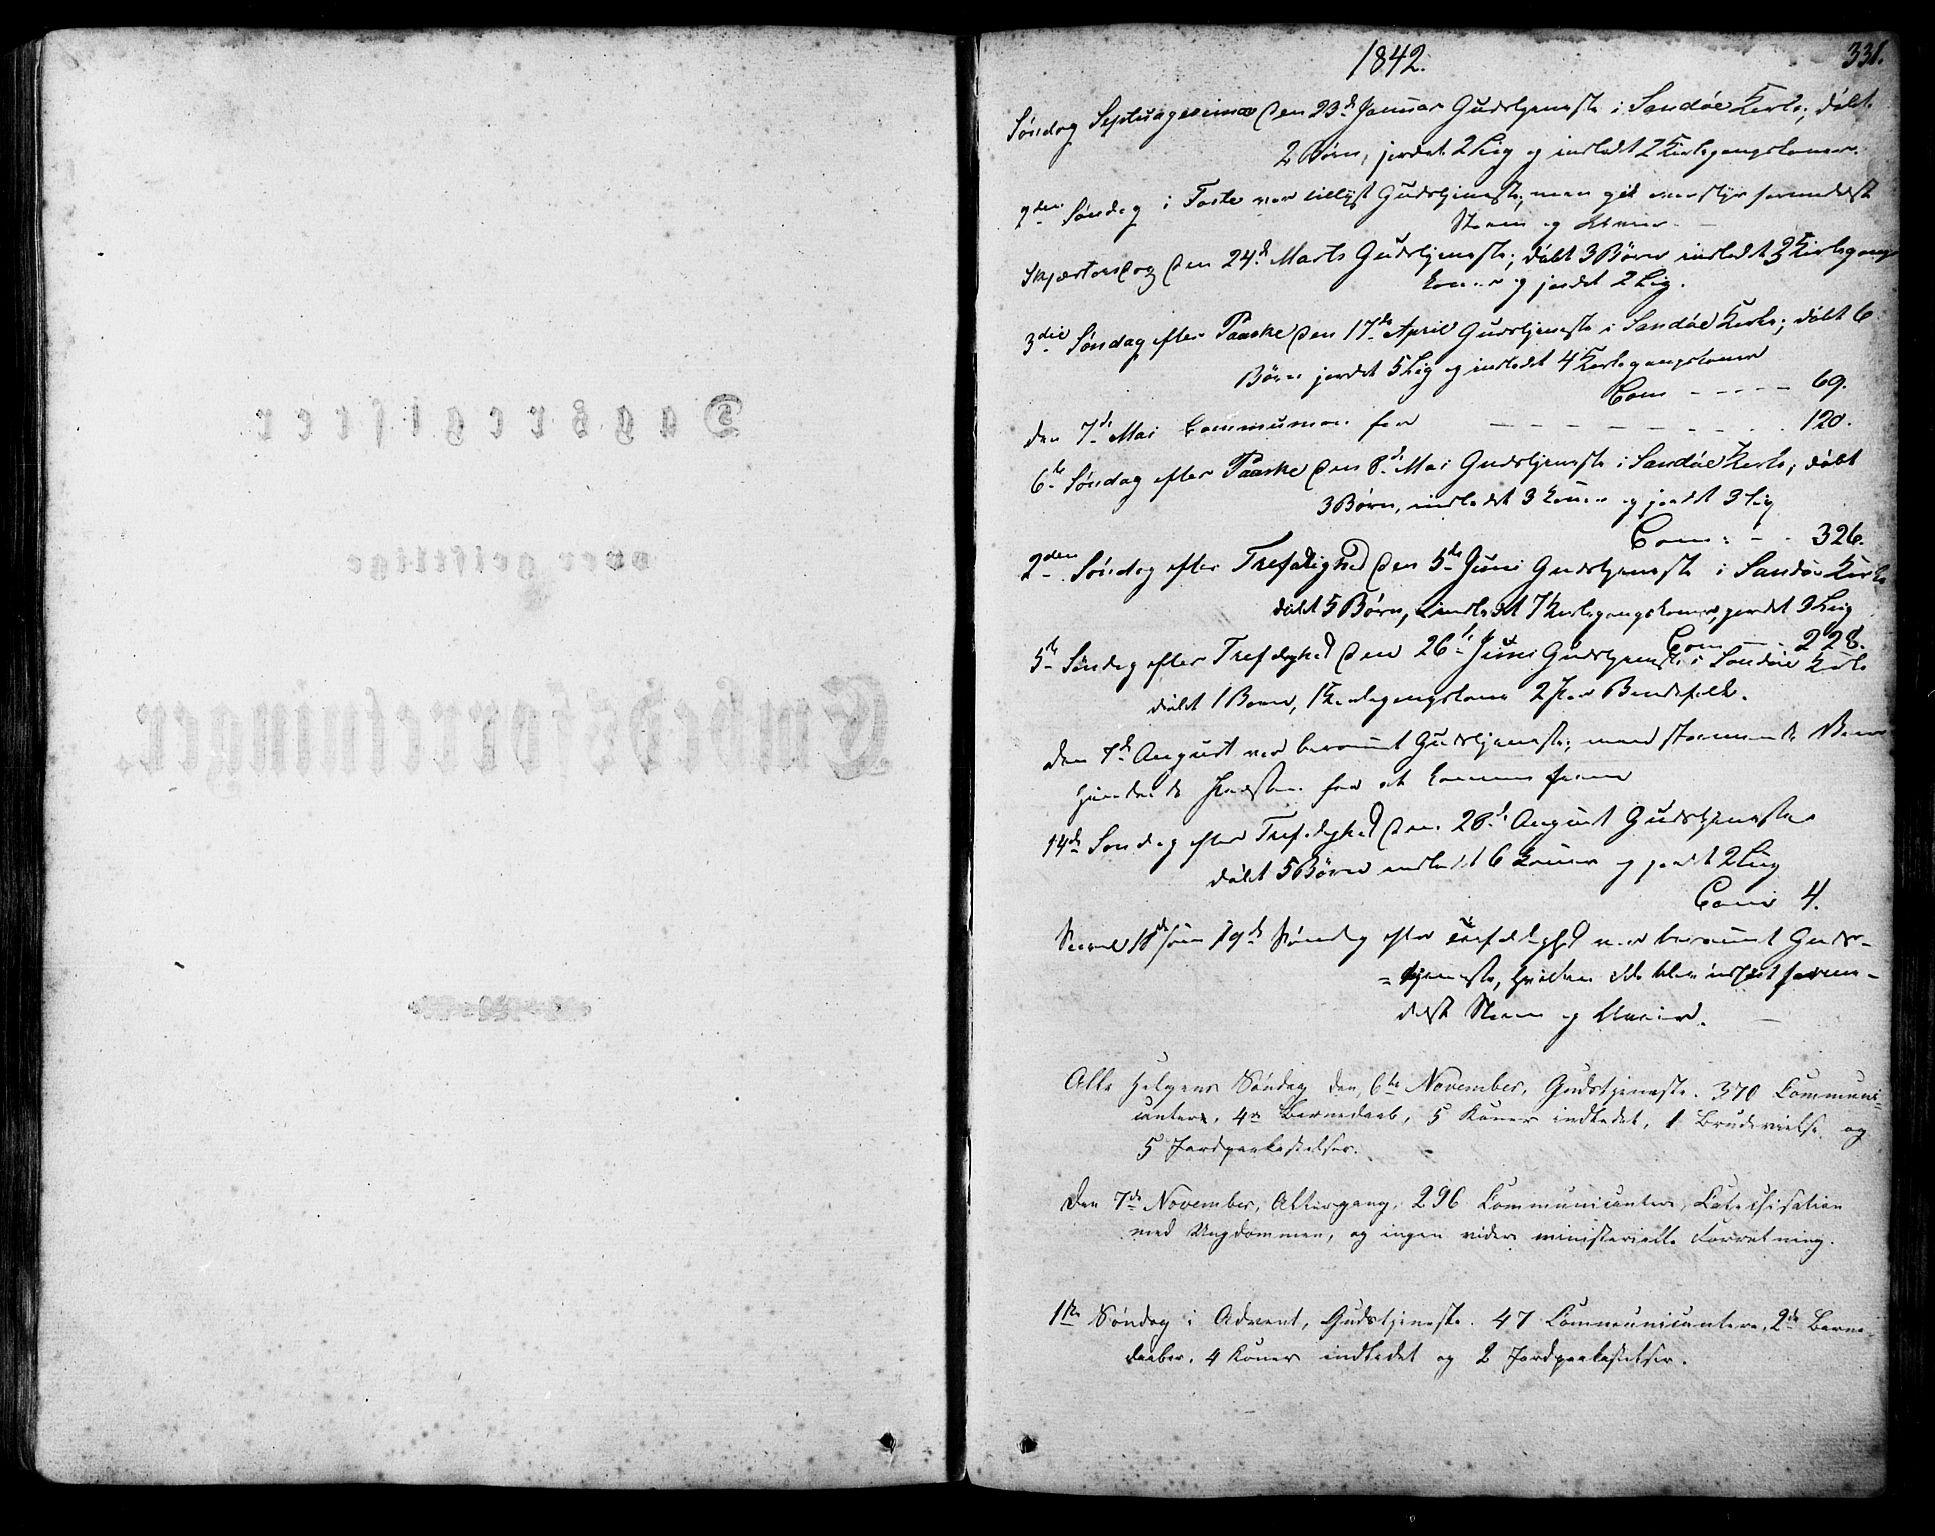 Dagsregister
over geistlige
Embedsforretninger.
1842.
331.
Søndag Septuagesima den 23d Januar Gudstjeneste i Sandøe Kirke; døbt
2 Børn, jordet 2 Liig og indledt 2 Kirkegangskoner.
2den Søndag i Faste var tillyst Gudstjeneste, men gik over styr formedelst
Storm og Uveir.
Skjærtorsdag den 24d Marts Gudstjeneste; døbt 3 Børn indledt 3 Kirkegangs
koner og jordet 2 Lig.
3die Søndag efter Paaske den 17de April Gudstjeneste i Sandøe Kirke; døbt 6
Børn jordet 5 Lig og indledet 4 Kirkegangskoner
Com - - - - - 69.
den 7de Mai Communion for - - - - - 120.
6te Søndag efter Paaske den 8de Mai Gudstjeneste i Sandøe Kirke, døbt
3 Børn, indledet 3 Koner og jordet 3 Lig
Com: - - 326.
2den Søndag efter Trefoldighed den 5te Juni Gudstjeneste i Sandøe Kirke
døbt 5 Børn, indledet 7 Kirkegangskoner, jordet 3 Liig
Com - - 228.
5te Søndag efter Trefoldighed den 26t Juni Gudstjeneste i Sandøe Kirke
døbt 1 Barn, 1 Kirkegangskone 2 Par Brudefolk.
den 7de August var berammet Gudstjeneste, men stormende Veir
hindrede Præsten for at komme frem
14de Søndag efter Trefoldighed den 28d August Gudstjeneste
døbt 5 Børn indledt 6 Koner og jordet 2 Liig
Com 4.
Saavel 18de som 19de Søndag efter Trefoldighed var berammet Guds-
=tjeneste, hvilken ikke blev indfriet forme-
delst Storm og Uveir.
Alle Helgens Søndag den 6te November, Gudstjeneste. 370 Communi-
canter, 4r Barnedaab, 5 Koner indledet, 1 Brudevielse og
5 Jordpaakastelser.
Den 7de November, Altergang, 296 Communicantere, Catechisation
med Ungdommen, og ingen videre ministerielle Forretning.
1ste Søndag i Advent, Gudstjeneste. 47 Communicantere, 2de Barne-
daaber, 4 Koner indledet og 2 Jordpaakastelser.